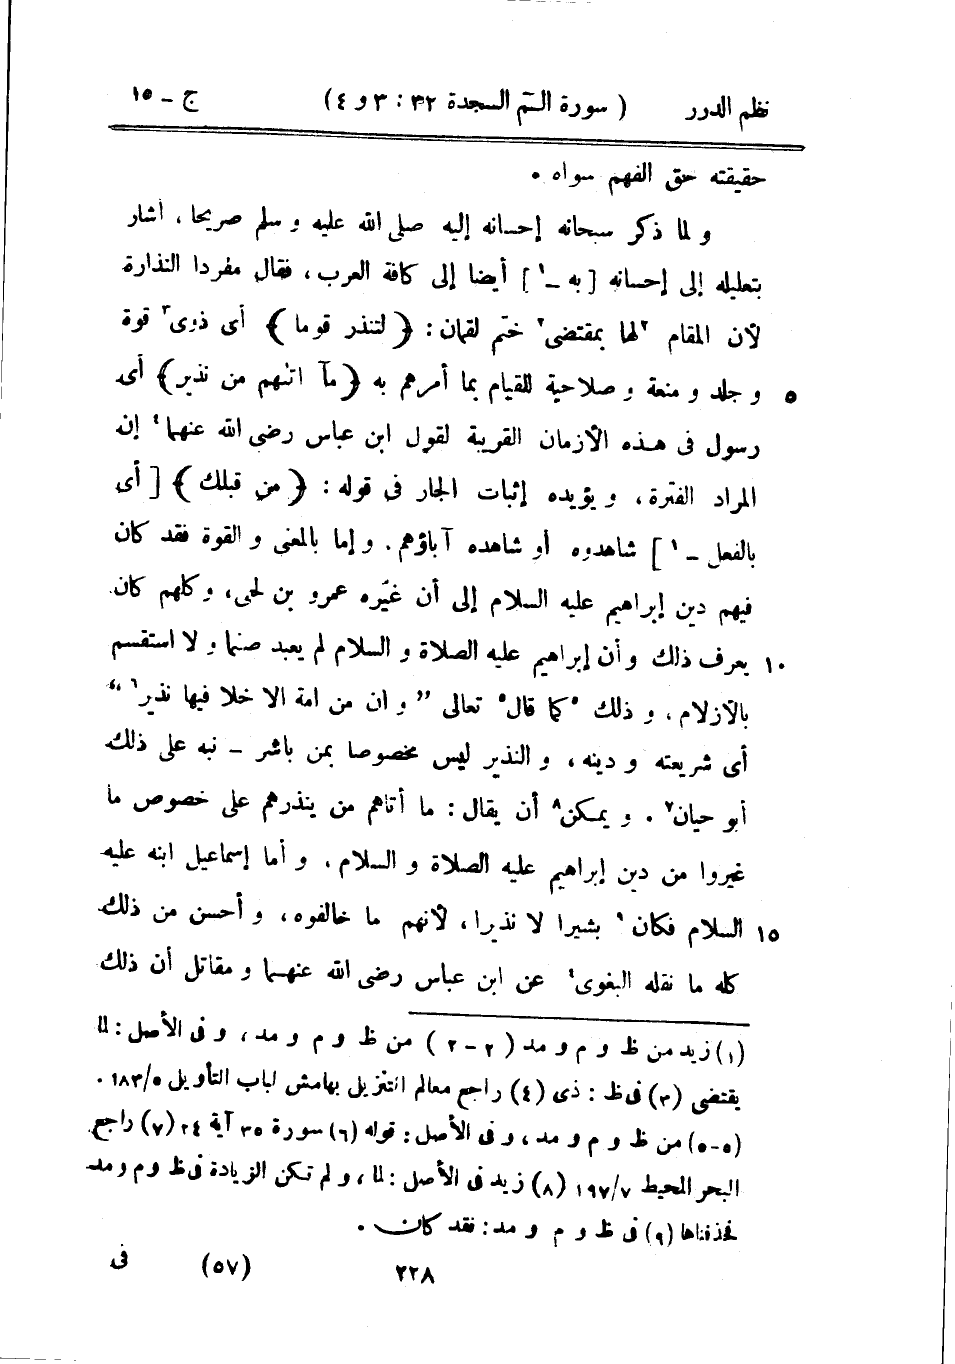 نظم الدرر ( سورة الـٓـمّ السجدة ٣٢ : ٣ و ٤ ) ج ـ ١٥
حقيقته حق الفهم سواه .
و لما ذكر سبحانه إحسانه إليه صلى الله عليه و سلم صريحا ، أشار
بتعليله إلى إحسانه [ به ـ ١ ] أيضا إلى كافة العرب ، فقال مفردا النذارة
لأن المقام ٢لها بمقتضى٢ ختم لقمان : ﴿ لتنذر قوما ﴾ أى ذوى٣ قوة
٥ و جلد و منعة و صلاحية للقيام بما أمرهم به ﴿ مآ اتٰهم من نذير ﴾ أى
رسول فى هـذه الأزمان القريبة لقول ابن عباس رضى الله عنهما٤ إن
المراد الفترة ، و يؤيده إثبات الجار فى قوله : ﴿ من قبلك ﴾ [ أى
بالفعل ـ ١ ] شاهدوه أو شاهده آباؤهم . و إما بالمعنى و القوة فقد كان
فيهم دين إبراهيم عليه السلام إلى أن غيّره عمرو بن لحى ، و كلهم كان
١٠ يعرف ذلك و أن إبراهيم عليه الصلاة و السلام لم يعبد صنما و لا استقسم
بالأزلام ، و ذلك ٥كما قال٥ تعالى ” و ان من امة الا خلا فيها نذير٦ “
أى شريعته و دينه ، و النذير ليس مخصوصا بمن باشر ـ نبه على ذلك
أبو حيان٧ . و يمـكن٨ أن يقال : ما أتاهم من ينذرهم على خصوص ما
غيروا من دين إبراهيم عليه الصلاة و السلام . و أما إسماعيل ابنه عليه
١٥ السلام فكان٩ بشيرا لا نذيرا ، لأنهم ما خالفوه ، و أحسن من ذلك
كله ما نقله البغوى٤ عن ابن عباس رضى الله عنهـما و مقاتل أن ذلك
(١) زيد من ظ و م و مد (٢ ـ ٢) من ظ و م و مد ، و فى الأصل : لما
يقتضى (٣) فى ظ : ذى (٤) راجع معالم التنزيل بهامش لباب التأويل ٥/١٨٣ .
(٥-٥) من ظ و م و مد ، و فى الأصل : قوله (٦) سورة ٣٥ آية ٢٤ (٧) راجع
البحر المحيط ٧/١٩٧ (٨) زيد فى الأصل : لما ، و لم تكن الزيادة فى ظ و م و مد
فحذفناها (٩) فى ظ و م و مد : فقد كان .
٢٢٨ (٥٧) فى